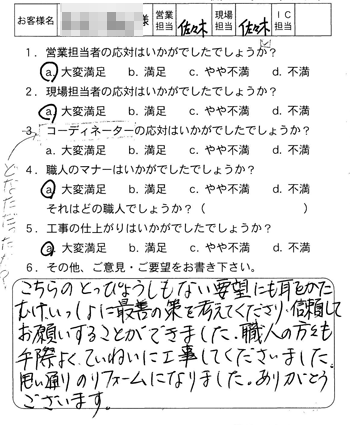 お客様名 様 営業担当 佐々木 現場担当 佐々木 ＩＣ担当
１．営業担当者の応対はいかがでしたでしょうか？
a. 大変満足 b. 満足 c. やや不満 d. 不満
２．現場担当者の応対はいかがでしたでしょうか？
a. 大変満足 b. 満足 c. やや不満 d. 不満
３．コーディネーターの応対はいかがでしたでしょうか？
a. 大変満足 b. 満足 c. やや不満 d. 不満
４．職人のマナーはいかがでしたでしょうか？
a. 大変満足 b. 満足 c. やや不満 d. 不満
それはどの職人でしょうか？（ ）
５．工事の仕上がりはいかがでしたでしょうか？
a. 大変満足 b. 満足 c. やや不満 d. 不満
６．その他、ご意見・ご要望をお書き下さい。
こちらのとっぴょうしもない要望にも耳をかた
むけ、いっしょに最善の策を考えてくださり、信頼して
お願いすることができました。職人の方々も
手際よく、ていねいに工事してくださいました。
思い通りのリフォームになりました。ありがとう
ございます。